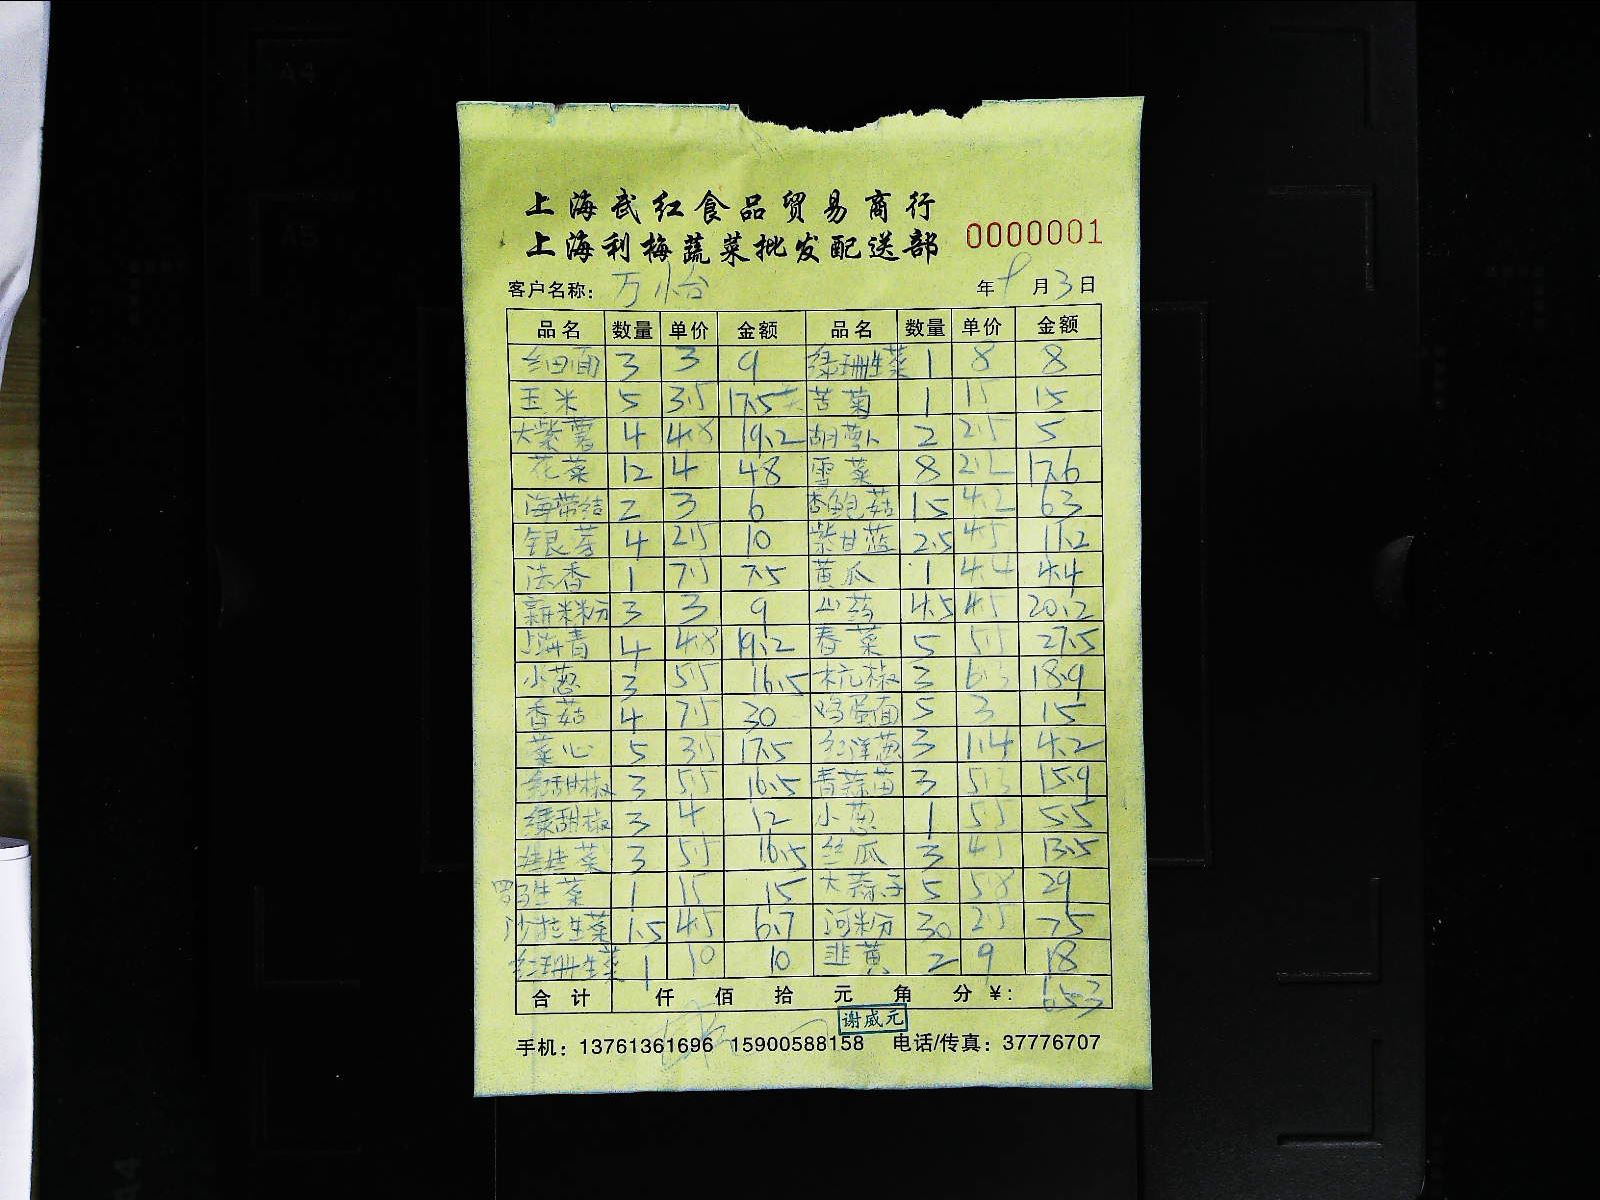 上海武红食品贸易商行
上海利梅蔬菜批发配送部 0000001
客户名称：万怡 年9月3日
品名 数量 单价 金额 品名 数量 单价 金额
细面 3 3 9 绿珊生菜 1 8 8
玉米 5 3.5 17.5 苦菊 1 15 15
大紫薯 4 4.8 19.2 胡萝卜 2 2.5 5
花菜 12 4 48 雪菜 8 2.2 17.6
海带结 2 3 6 杏鲍菇 15 4.2 63
银芽 4 2.5 10 紫甘蓝 2.5 4.5 11.2
法香 1 7.5 7.5 黄瓜 1 4.4 4.4
新米粉 3 3 9 山药 4.5 4.5 20.2
上海青 4 4.8 19.2 春菜 5 5.5 27.5
小葱 3 5.5 16.5 杭椒 3 6.3 18.9
香菇 4 7.5 30 鸡蛋面 5 3 15
菜心 5 3.5 17.5 红洋葱 3 1.4 4.2
红甜椒 3 5.5 16.5 青蒜苗 3 5.3 15.9
绿甜椒 3 4 12 小葱 1 5.5 5.5
娃娃菜 3 5.5 16.5 丝瓜 3 4.5 13.5
罗马生菜 1 15 15 大蒜子 5 5.8 29
沙拉生菜 1.5 4.5 6.7 河粉 30 2.5 75
红珊生菜 1 10 10 韭黄 2 9 18
合计 仟 佰 拾 元 角 分 ¥: 653
谢威元
手机：13761361696 15900588158 电话/传真：37776707